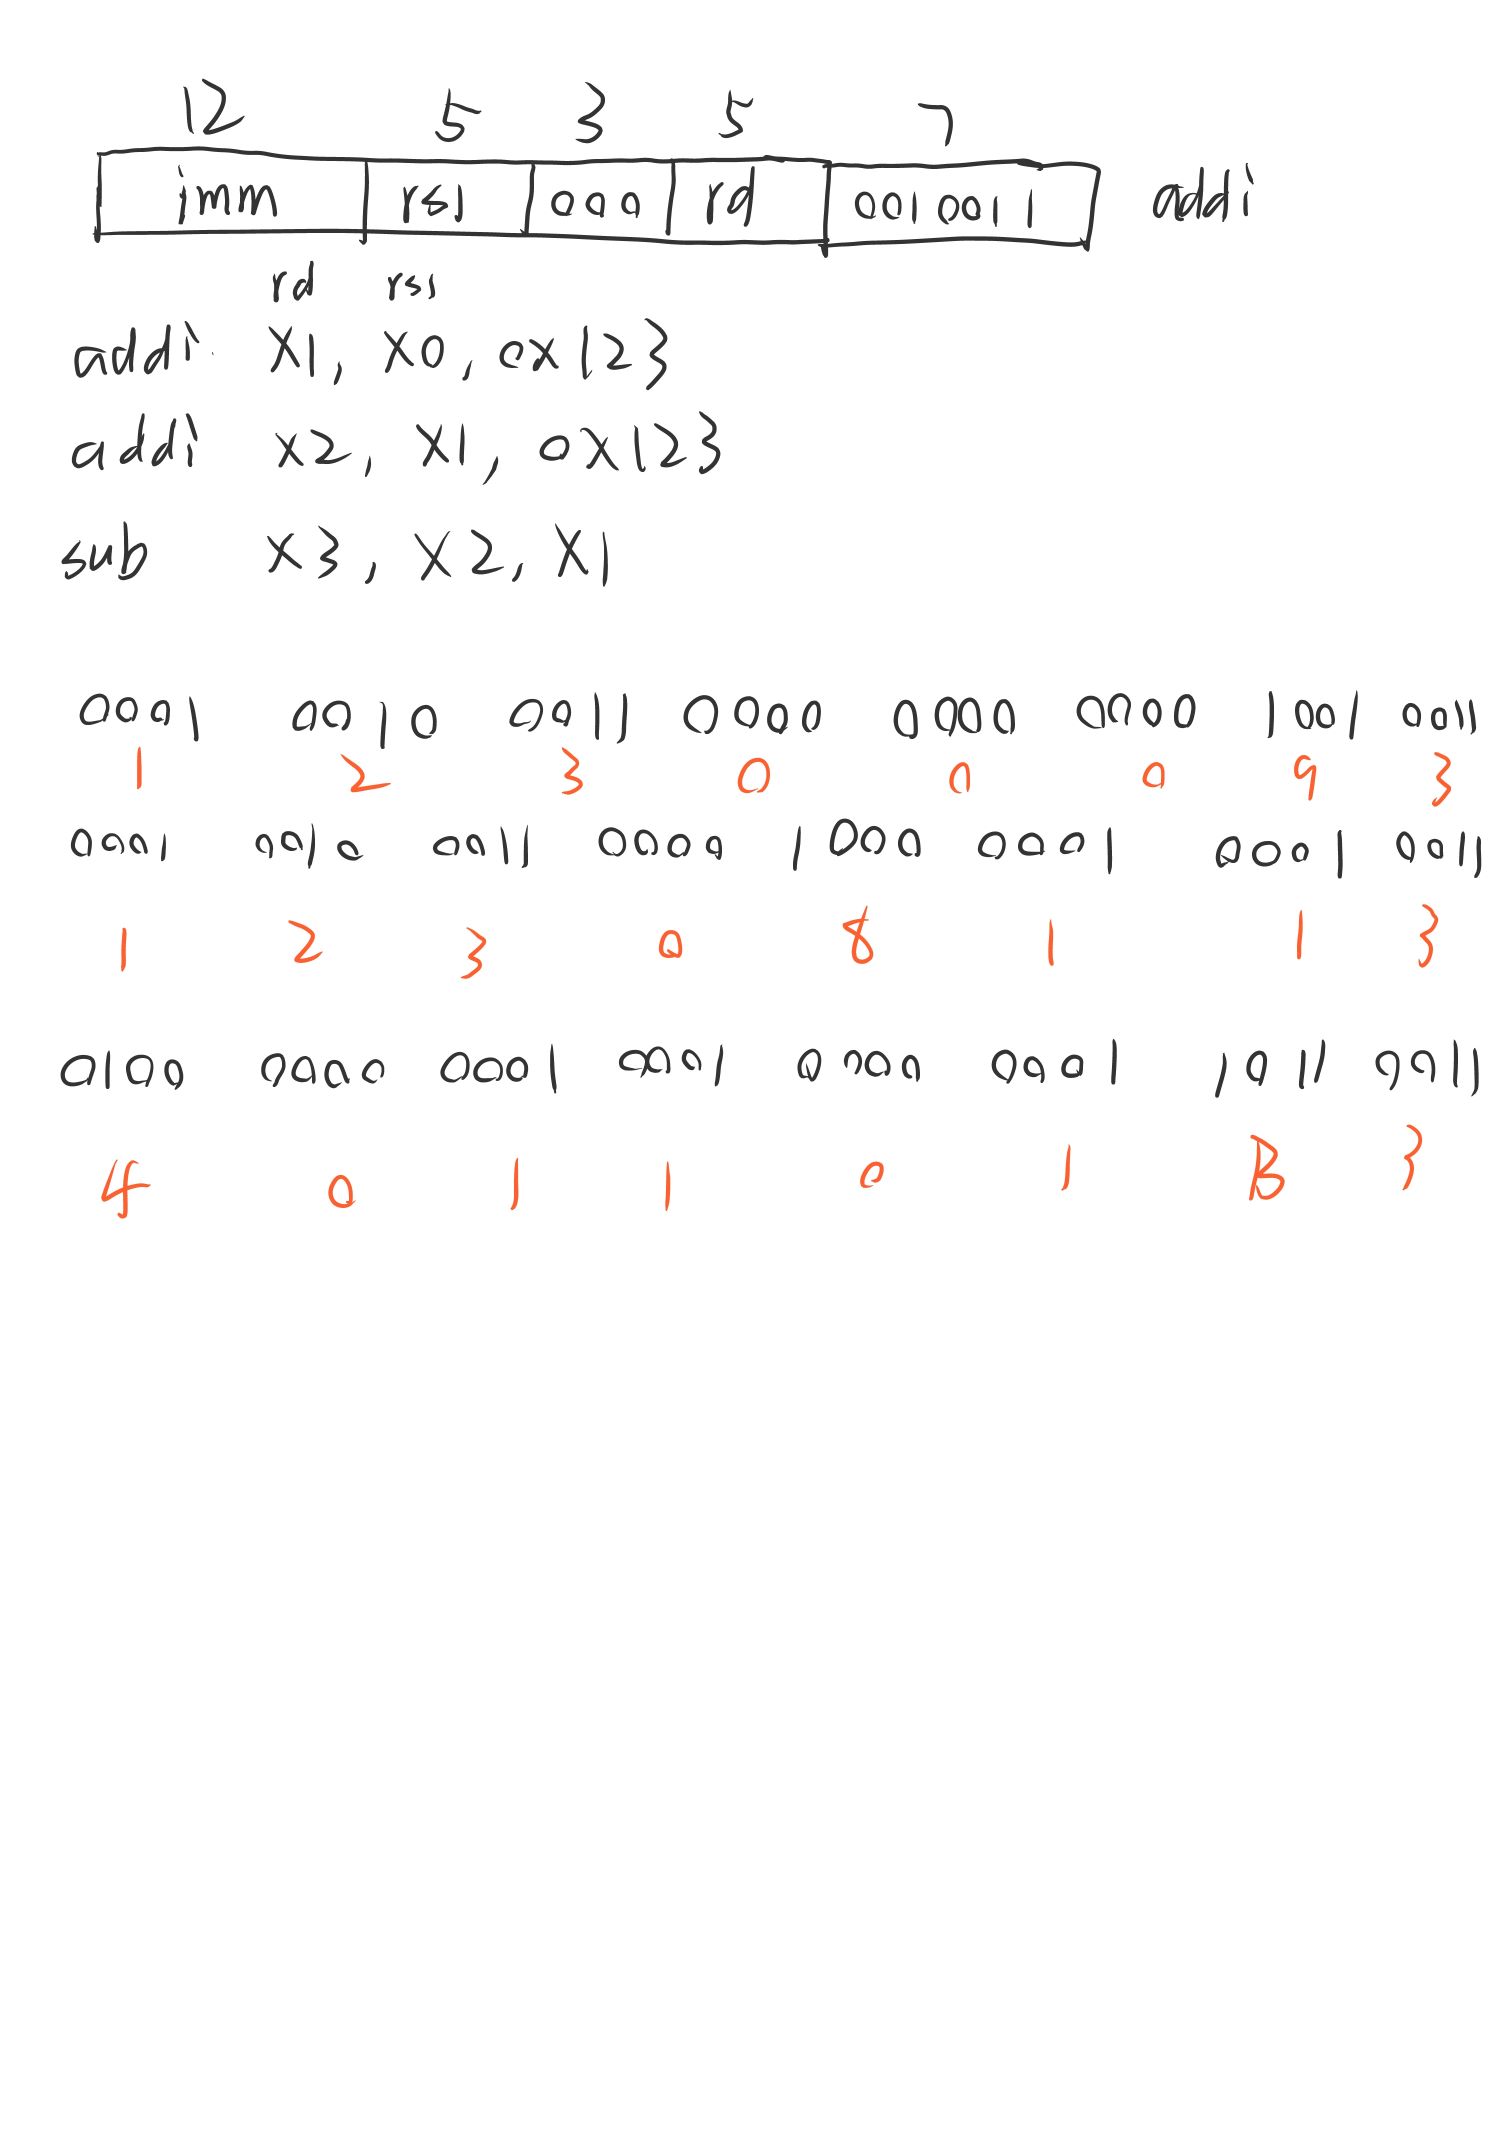 12 5 3 5 7
imm rs1 000 rd 0010011 addi
rd rs1
addi x1, x0, 0x123
addi x2, x1, 0x123
sub x3, x2, x1
0001 0010 0011 0000 0000 0000 1001 0011
1 2 3 0 0 0 9 3
0001 0010 0011 0000 1000 0001 0001 0011
1 2 3 0 8 1 1 3
0100 0000 0001 0001 0000 0001 1011 0011
4 0 1 1 0 1 B 3